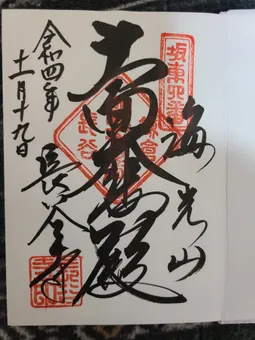 坂東四番
海光山
十一面大悲殿
長谷寺
令和四年
十一月十九日